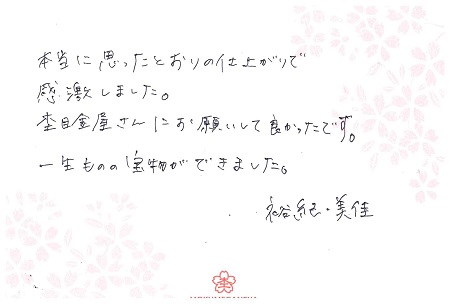 本当に思ったとおりの仕上がりで
感激しました。
杢目金屋さんにお願いして良かったです。
一生ものの宝物ができました。
裕紀・美佳